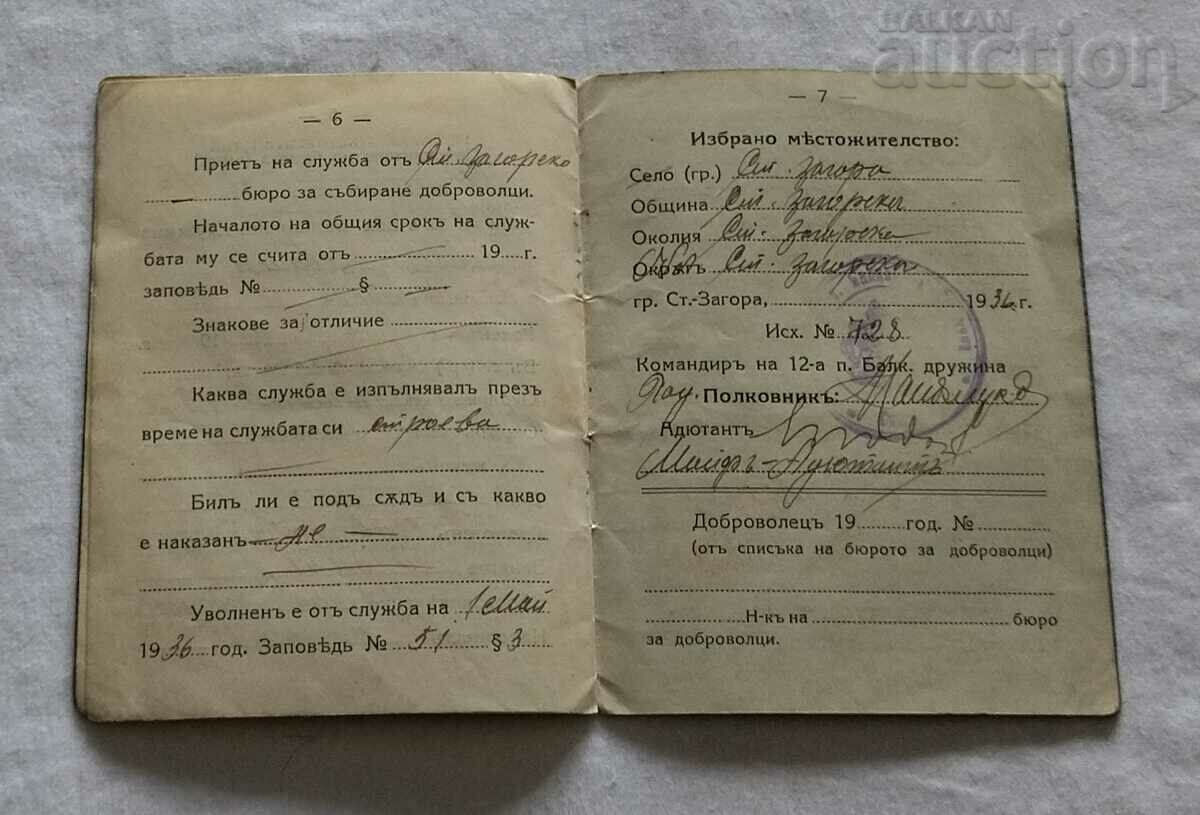 BALKAN
auction
— 6 —
Приетъ на служба отъ Ст. Загорско
бюро за събиране доброволци.
Началото на общия срокъ на служ-
бата му се счита отъ 19 г.
заповѣдь № §
Знакове за отличие
Каква служба е изпълнявалъ презъ
време на службата си строева
Билъ ли е подъ сѫдъ и съ какво
е наказанъ не
Уволненъ е отъ служба на 1 Май
1936 год. Заповѣдь № 51 § 3
— 7 —
Избрано мѣстожителство:
Село (гр.) Ст. Загора
Община Ст. Загорска
Околия Ст. Загорска
Окрѫгъ Ст. Загорска
гр. Ст.-Загора, 1936 г.
Исх. № 728
Командиръ на 12-а п. Балк. дружина
Полковникъ:
Адютантъ
Доброволецъ 19 год. №
(отъ списъка на бюрото за доброволци)
Н-къ на бюро
за доброволци.